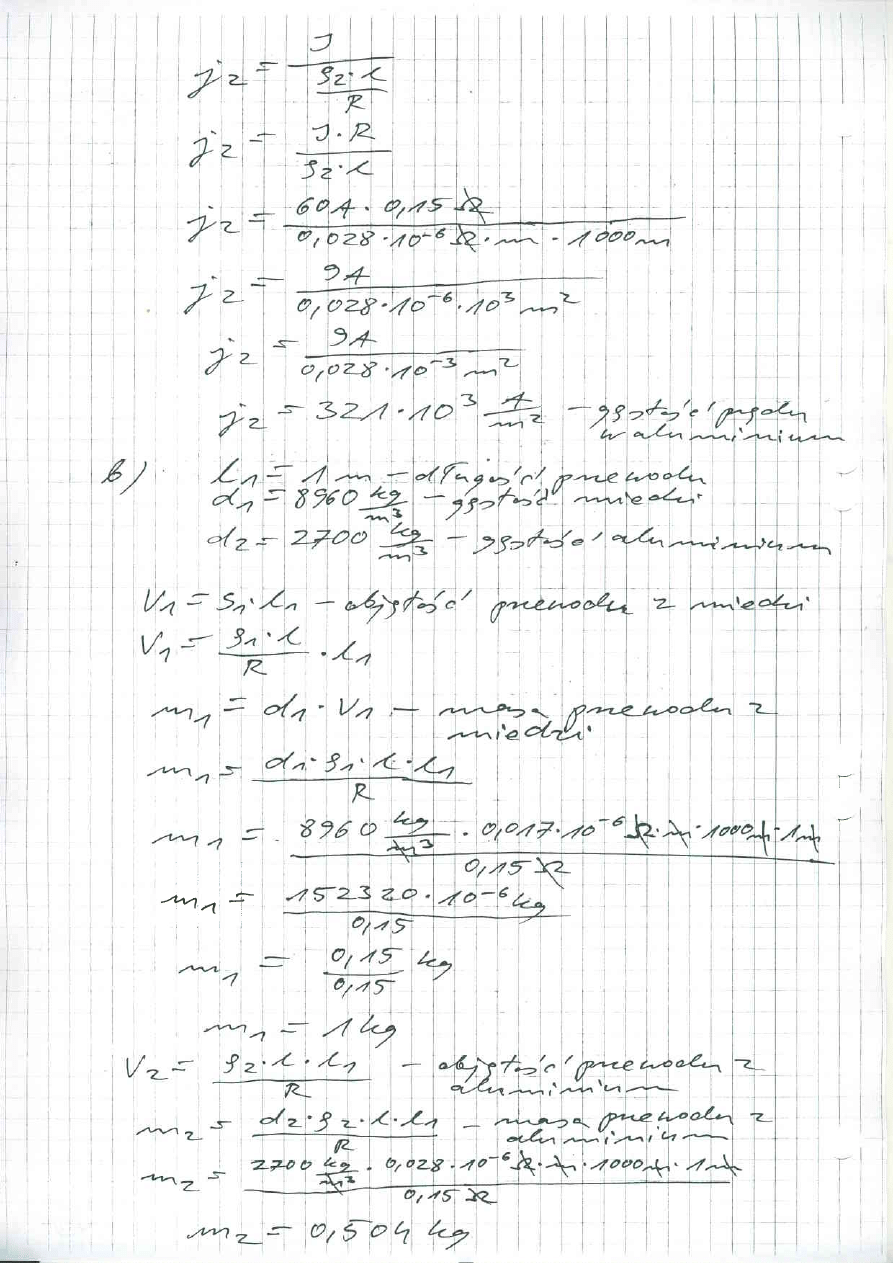 j₂ = J / (ρ₂·l / R)
j₂ = J·R / ρ₂·l
j₂ = 60A · 0,15 Ω / 0,028·10⁻⁶ Ω·m · 1000m
j₂ = 9A / 0,028·10⁻⁶·10³ m²
j₂ = 9A / 0,028·10⁻³ m²
j₂ = 321·10³ A/m² – gęstość prądu
w aluminium
b) l₁ = 1 m – długość przewodu
d₁ = 8960 kg/m³ – gęstość miedzi
d₂ = 2700 kg/m³ – gęstość aluminium
V₁ = S₁·l₁ – objętość przewodu z miedzi
V₁ = ρ₁·l / R · l₁
m₁ = d₁·V₁ – masa przewodu z
miedzi
m₁ = d₁·ρ₁·l·l₁ / R
m₁ = 8960 kg/m³ · 0,017·10⁻⁶ Ω·m·1000m·1m / 0,15 Ω
m₁ = 152320·10⁻⁶ kg / 0,15
m₁ = 0,15 / 0,15 kg
m₁ = 1 kg
V₂ = ρ₂·l·l₁ / R – objętość przewodu z
aluminium
m₂ = d₂·ρ₂·l·l₁ / R – masa przewodu z
aluminium
m₂ = 2700 kg/m³ · 0,028·10⁻⁶ Ω·m·1000m·1m / 0,15 Ω
m₂ = 0,504 kg